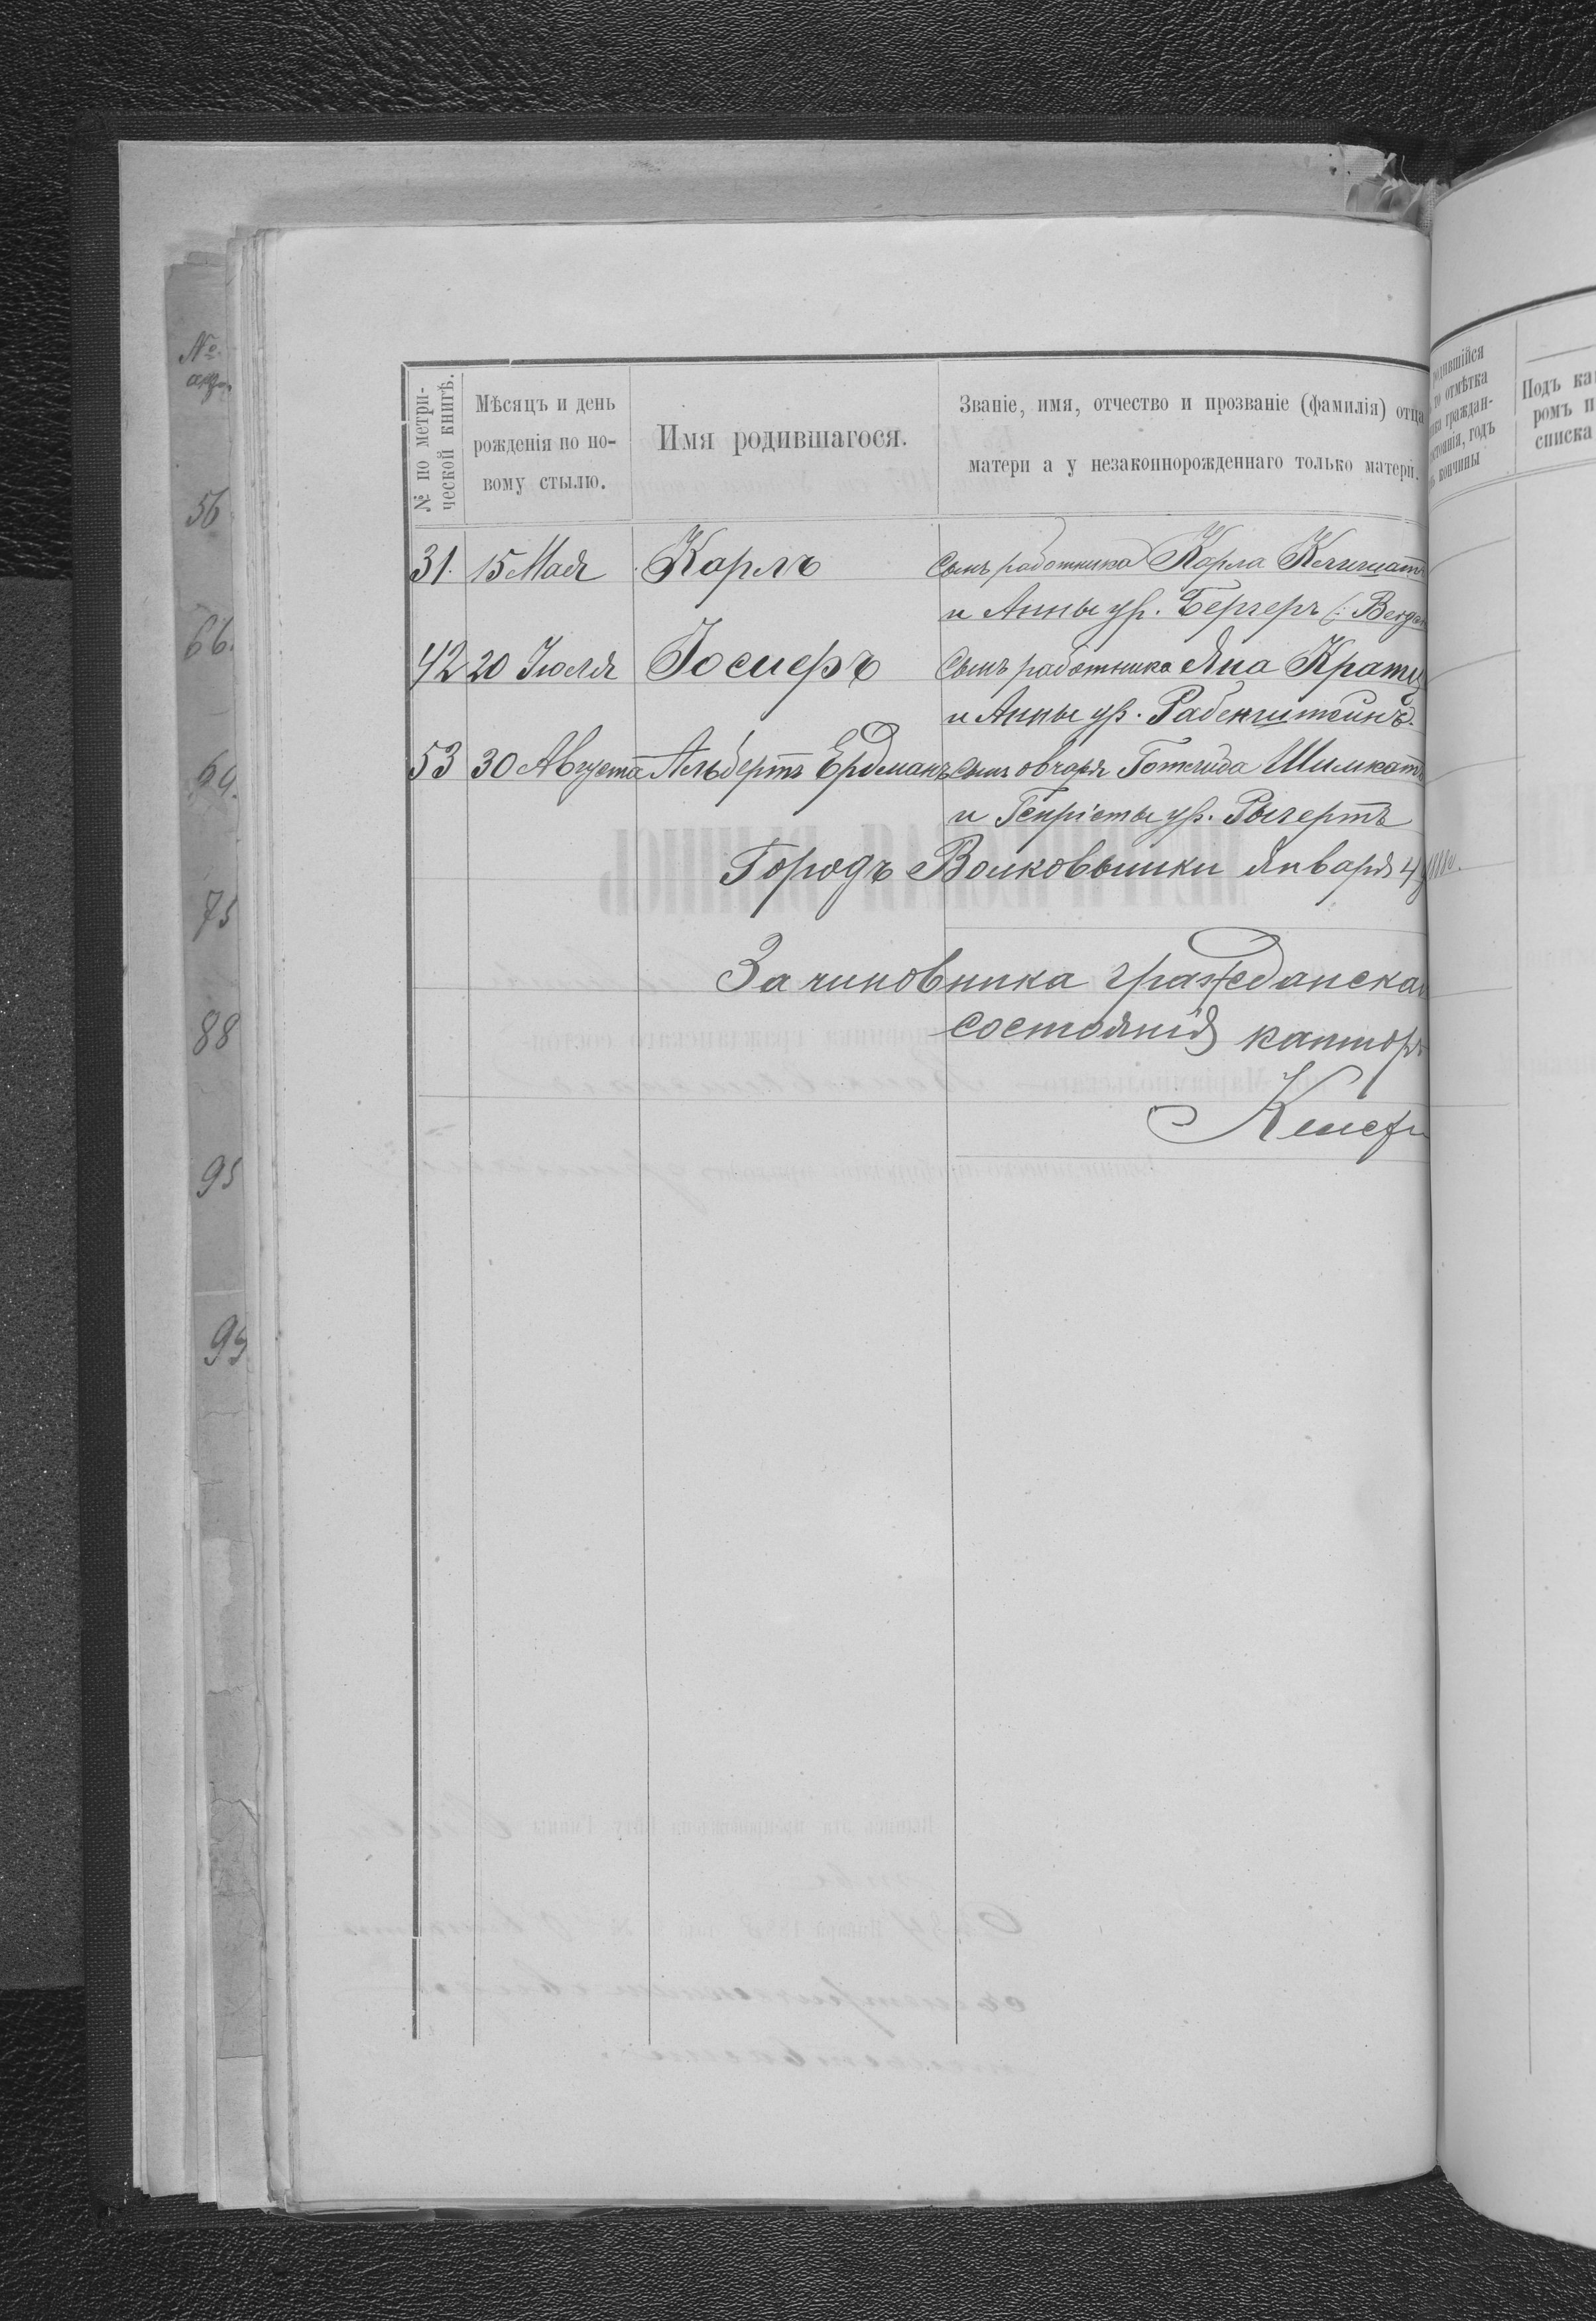 №
акт.
56
66.
69.
75
88
95
99
№ по метри-
ческой книгѣ.
Мѣсяцъ и день
рожденія по но-
вому стылю.
Имя родившагося.
Званіе, имя, отчество и прозваніе (фамилія) отца
матери а у незаконнорожденнаго только матери.
31. 15 Мая Карлъ сынъ работника Карла
и Анны ур. Бергеръ (: Berger
42 20 Іюля сынъ работника Яна
и Анны ур. Рабенштейнъ.
53 30 Августа Альбертъ Ердманъ сынъ овчаря Готлида Шимкатъ
и Генріеты ур. Рыхертъ
Городъ Волковышки Января 4
За чиновника гражданска
состоянія канторъ
родившійся
то отмѣтка
граждан-
стоянія, годъ
кончины
Подъ ка
ромъ п
списка